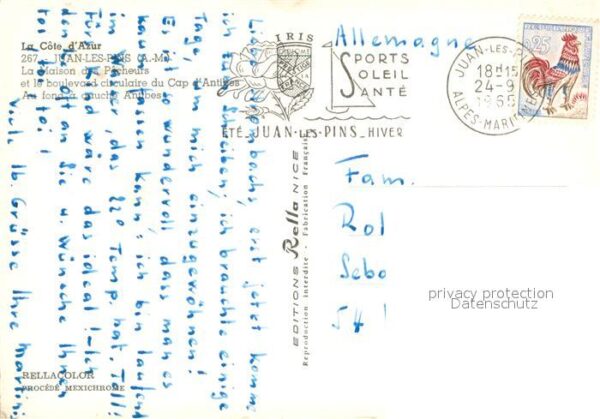 La Côte d'Azur
267 - JUAN-LES-PINS (A.-M.)
La Maison des Pêcheurs
et le boulevard circulaire du Cap d'Antibes
Au fond à gauche Antibes
IRIS
SPORTS
SOLEIL
SANTÉ
ÉTÉ JUAN-LES-PINS HIVER
JUAN-LES-P
18H15
24-9
1965
ALPES-MARITIMES
25
Allemagne
Fam.
Rol
Sebo
54!
privacy protection
Datenschutz
EDITIONS Rella NICE
Reproduction interdite - Fabrication Française
erst jetzt komme
ich zum Schreiben; ich brauchte einige
Tage, um mich einzugewöhnen!
Es ist wundervoll dass man es
kaum kann; ich bin laufend
im Wasser, das 22° Temp. hat. Toll!
Für wäre das ideal! - Ich
denke oft an Sie u. wünsche Ihnen
Viele lb. Grüsse Ihre
RELLACOLOR
PROCÉDÉ MEXICHROME